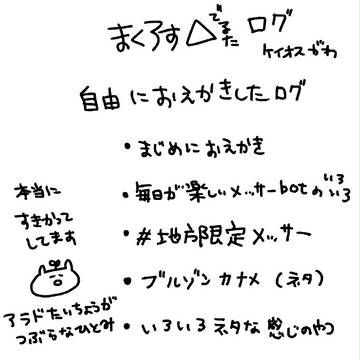 まくろす△でるた ログ
ケイオスがわ
自由におえかきしたログ
・まじめにおえかき
・毎日が楽しいメッサーbotのいろいろ
・#地方限定メッサー
・ブルゾンカナメ(ネタ)
・いろいろネタな感じのやつ
本当に
すきかって
してます
アラドたいちょうが
つぶらなひとみ